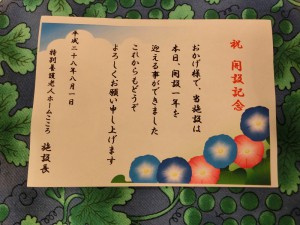 祝 開設記念
おかげ様で、当施設は
本日、開設一年を
迎える事ができました
これからもどうぞ
よろしくお願い申し上げます
平成二十八年八月一日
特別養護老人ホームこころ 施設長